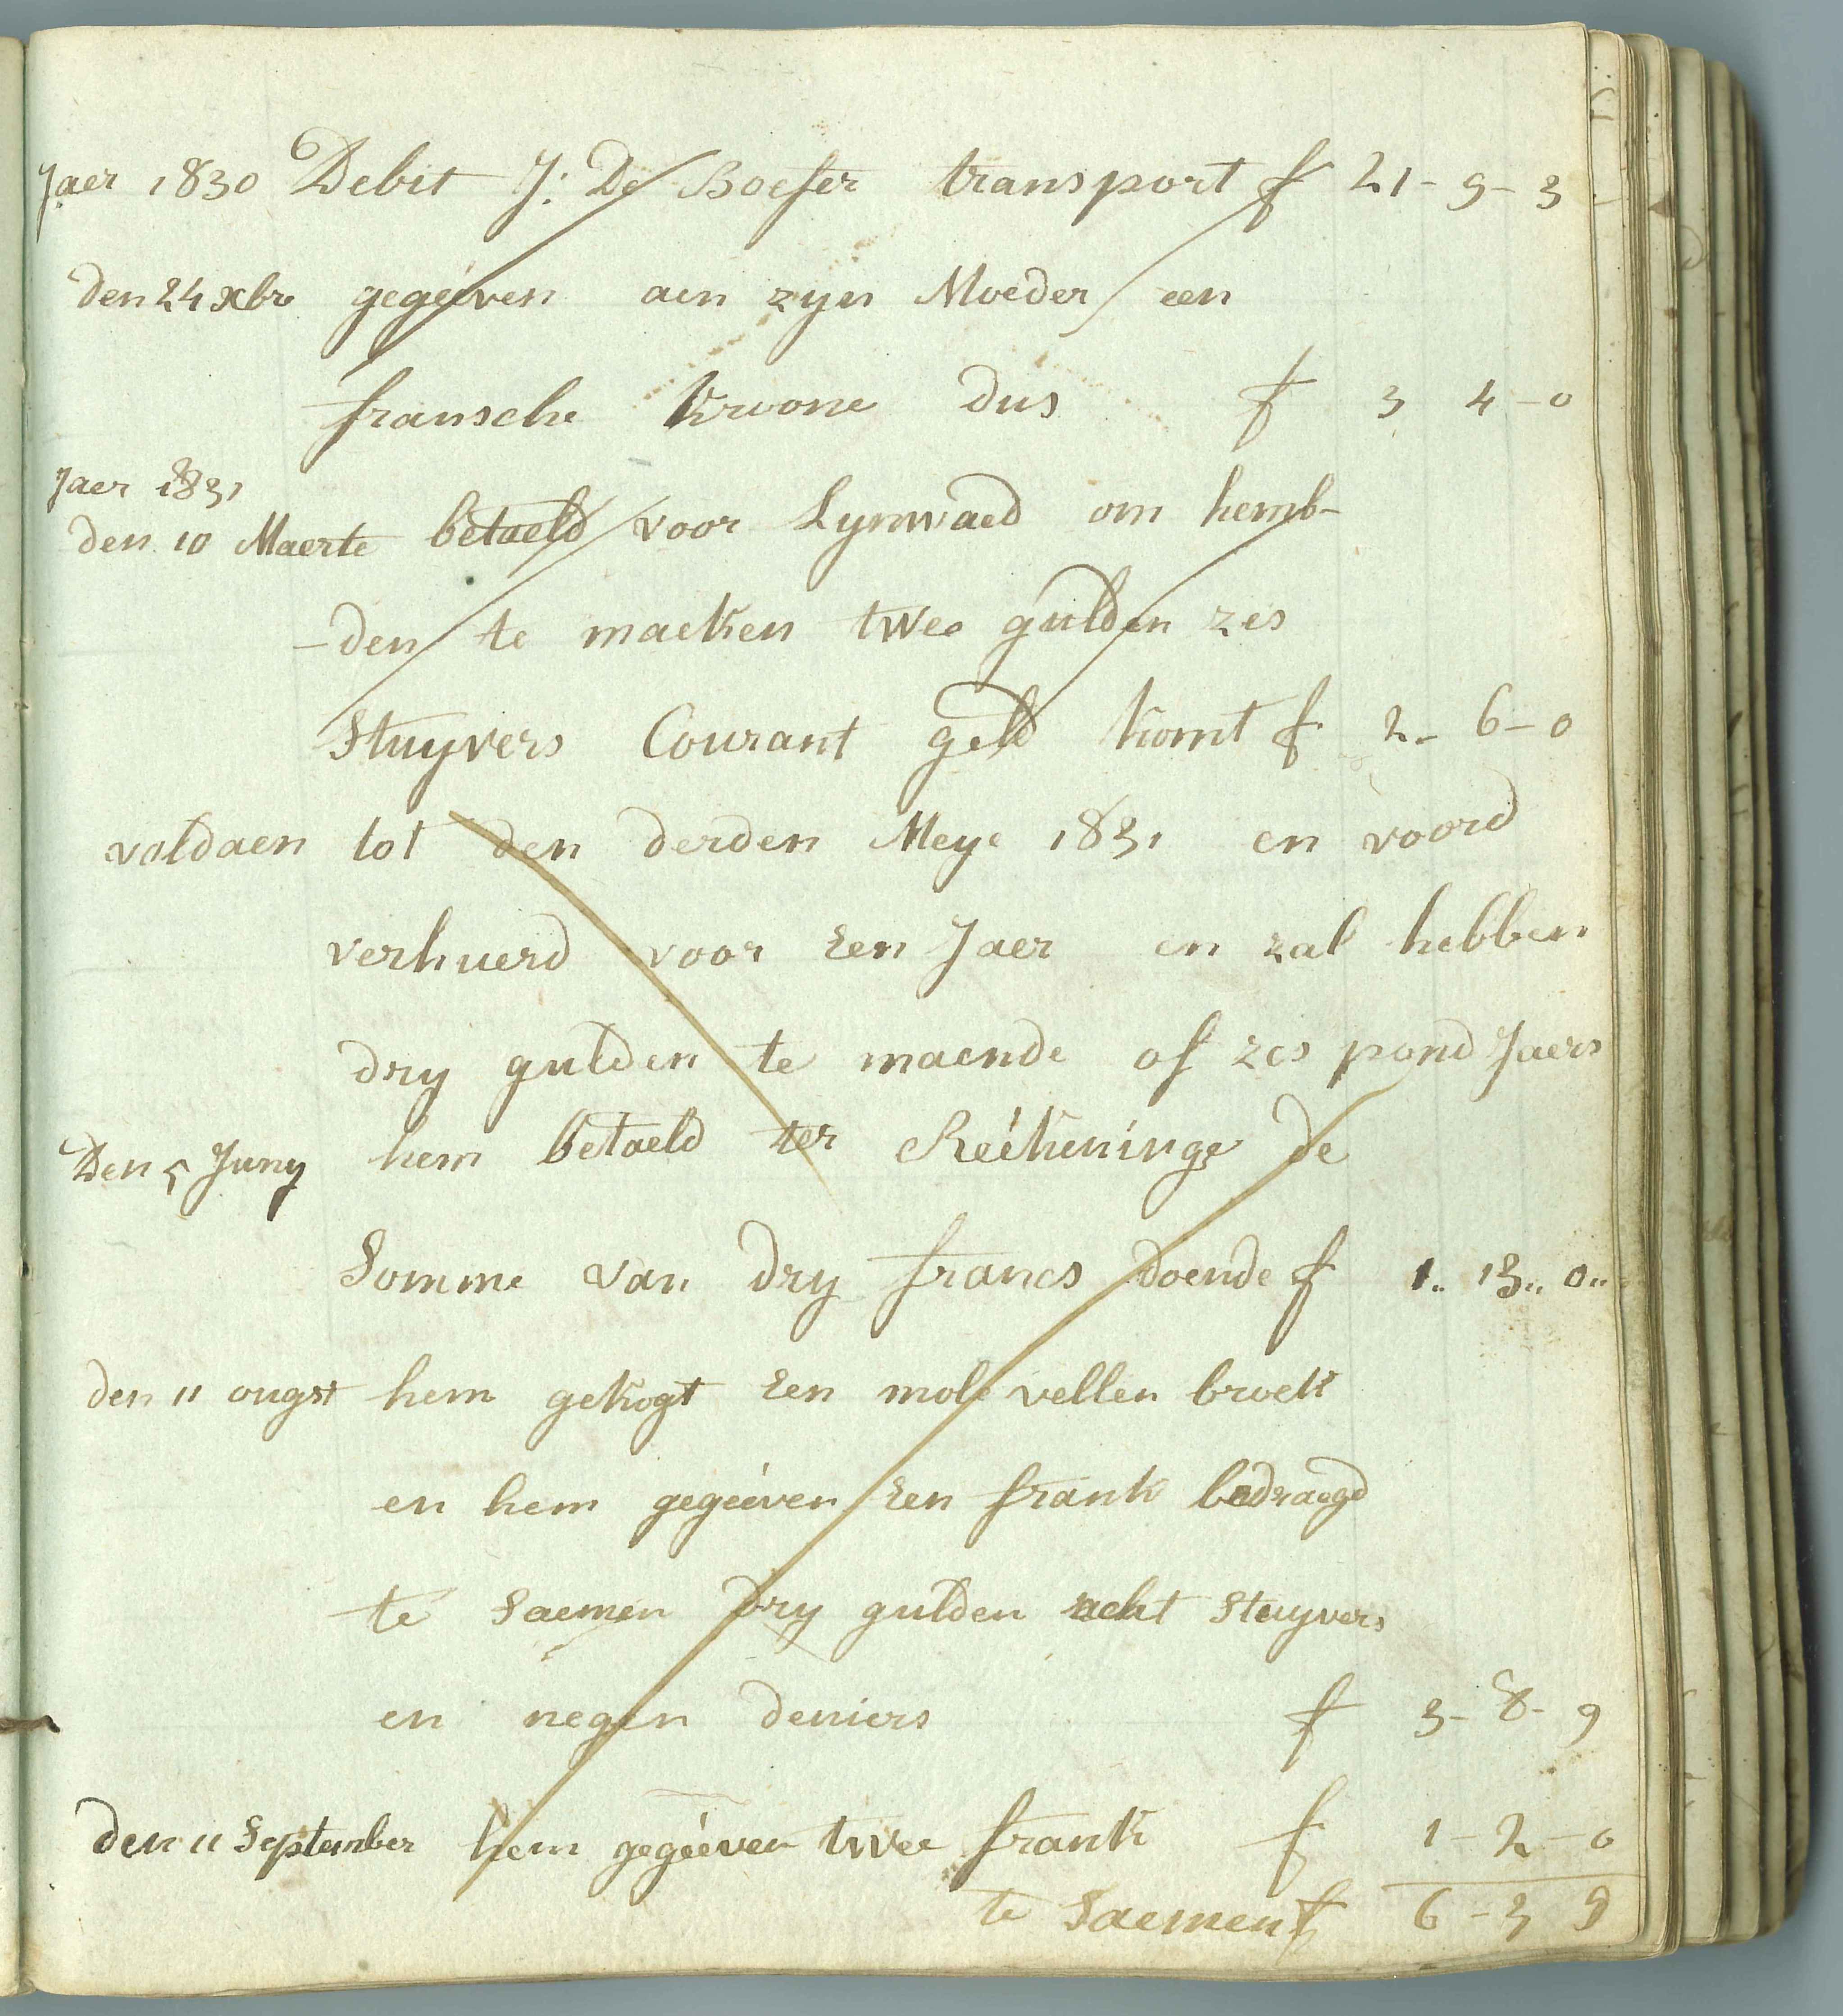 Jaer 1830 Debit J: De Boeser transport f 21-9-3
den 24 xbre gegeéven aen zyn Moeder een
fransche Kroone dus f 3 4-0
Jaer 1831
den 10 Maerte betaeld voor Lynwaed om hemb-
-den te maeken twee gulden zes
Stuyvers Courant geld komt f 2-6-0
voldaen tot den derden Meye 1831 en voord
verhuerd voor Een Jaer en zal hebben
dry gulden te maende of zes pond Jaers
Den 5 Juny hem betaeld ter Reékeninge de
Somme van dry francs doende f 1.. 13.. 0..
den 11 ougst hem gekogt Een mole vellen broek
en hem gegeéven Een frank bedraegd
te Saemen dry gulden acht Stuyvers
en negen deniers f 3-8-9
den 11 September hem gegeéven twee frank f 1-2-0
te Saemen f 6-3 9